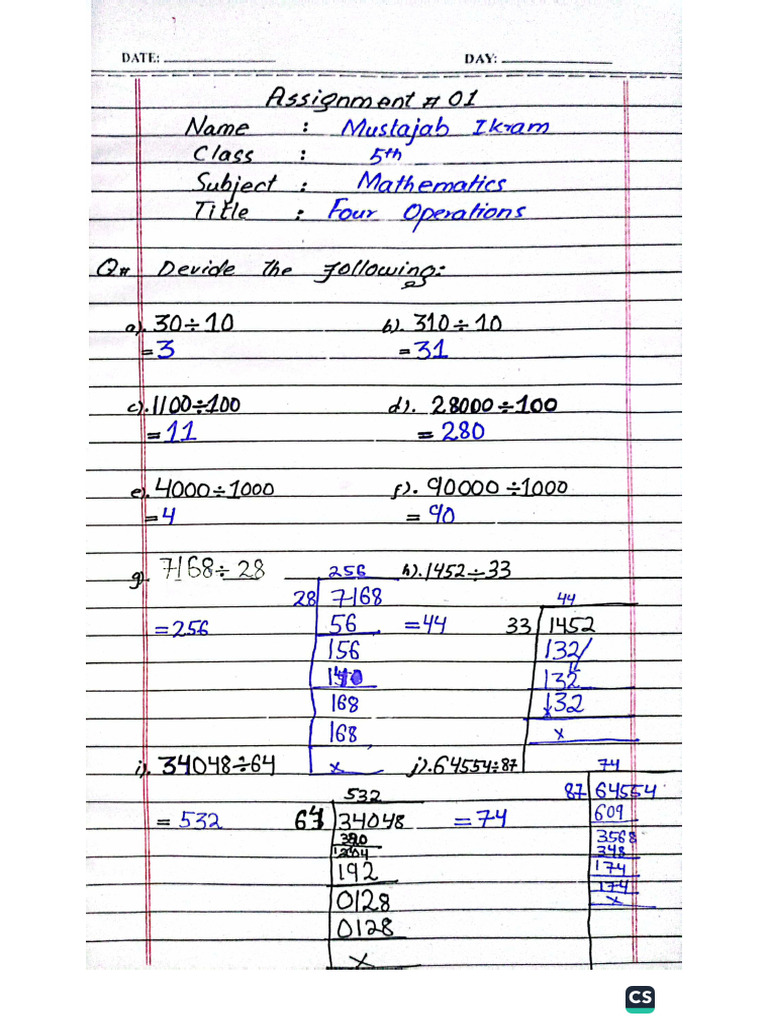 DATE: DAY:
Assignment # 01
Name : Mustajab Ikram
Class : 5th
Subject : Mathematics
Title : Four Operations
Q# Devide the following:
a). 30÷10 b). 310÷10
=3 =31
c). 1100÷100 d). 28000÷100
=11 =280
e). 4000÷1000 f). 90000÷1000
=4 =90
g). 7168÷28 256 h). 1452÷33
28 7168 44
=256 56 =44 33 1452
156 132
140 132
168 132
168 x
i). 34048÷64 x j). 64554÷87 74
532 87 64554
=532 64 34048 =74 609
3568
348
192 174
0128 174
0128 x
x
CS